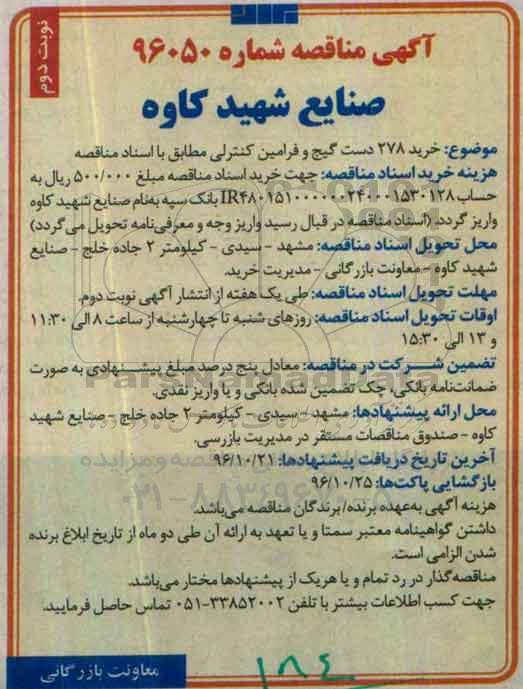 نوبت دوم
آگهی مناقصه شماره ۹۶۰۵۰
صنایع شهید کاوه
موضوع: خرید ۲۷۸ دست گیج و فرامین کنترلی مطابق با اسناد مناقصه
هزینه خرید اسناد مناقصه: جهت خرید اسناد مناقصه مبلغ ۵۰۰/۰۰۰ ریال به
حساب IR۴۸۰۱۵۱۰۰۰۰۰۰۰۲۴۰۰۰۱۵۳۰۱۲۸ بانک سپه به‌نام صنایع شهید کاوه
واریز گردد. (اسناد مناقصه در قبال رسید واریز وجه و معرفی‌نامه تحویل می‌گردد)
محل تحویل اسناد مناقصه: مشهد - سیدی - کیلومتر ۲ جاده خلج - صنایع
شهید کاوه - معاونت بازرگانی - مدیریت خرید.
مهلت تحویل اسناد مناقصه: طی یک هفته از انتشار آگهی نوبت دوم.
اوقات تحویل اسناد مناقصه: روزهای شنبه تا چهارشنبه از ساعت ۸ الی ۱۱:۳۰
و ۱۳ الی ۱۵:۳۰
تضمین شـــرکت در مناقصه: معادل پنج درصد مبلغ پیشــنهادی به صورت
ضمانت‌نامه بانکی، چک تضمین شده بانکی و یا واریز نقدی.
محل ارائه پیشنهادها: مشهد - سیدی - کیلومتر ۲ جاده خلج - صنایع شهید
کاوه - صندوق مناقصات مستقر در مدیریت بازرسی.
آخرین تاریخ دریافت پیشنهادها: ۹۶/۱۰/۲۱
بازگشایی پاکت‌ها: ۹۶/۱۰/۲۵
هزینه آگهی به‌عهده برنده/ برندگان مناقصه می‌باشد.
داشتن گواهینامه معتبر سمتا و یا تعهد به ارائه آن طی دو ماه از تاریخ ابلاغ برنده
شدن الزامی است.
مناقصه‌گذار در رد تمام و یا هریک از پیشنهادها مختار می‌باشد.
جهت کسب اطلاعات بیشتر با تلفن ۳۳۸۵۲۰۰۲-۰۵۱ تماس حاصل فرمایید.
معاونت بازرگانی
۱۸۴